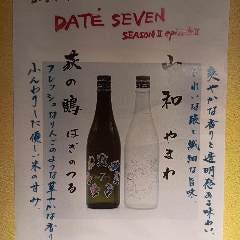 DATE SEVEN
SEASON II episode II
爽やかな香りと透明感ある味わい、
きれいな酸と繊細な旨味
山和 やまわ
萩の鶴 はぎのつる
フレッシュなりんごのような華やかな香り
ふんわりした優しい米の甘み。